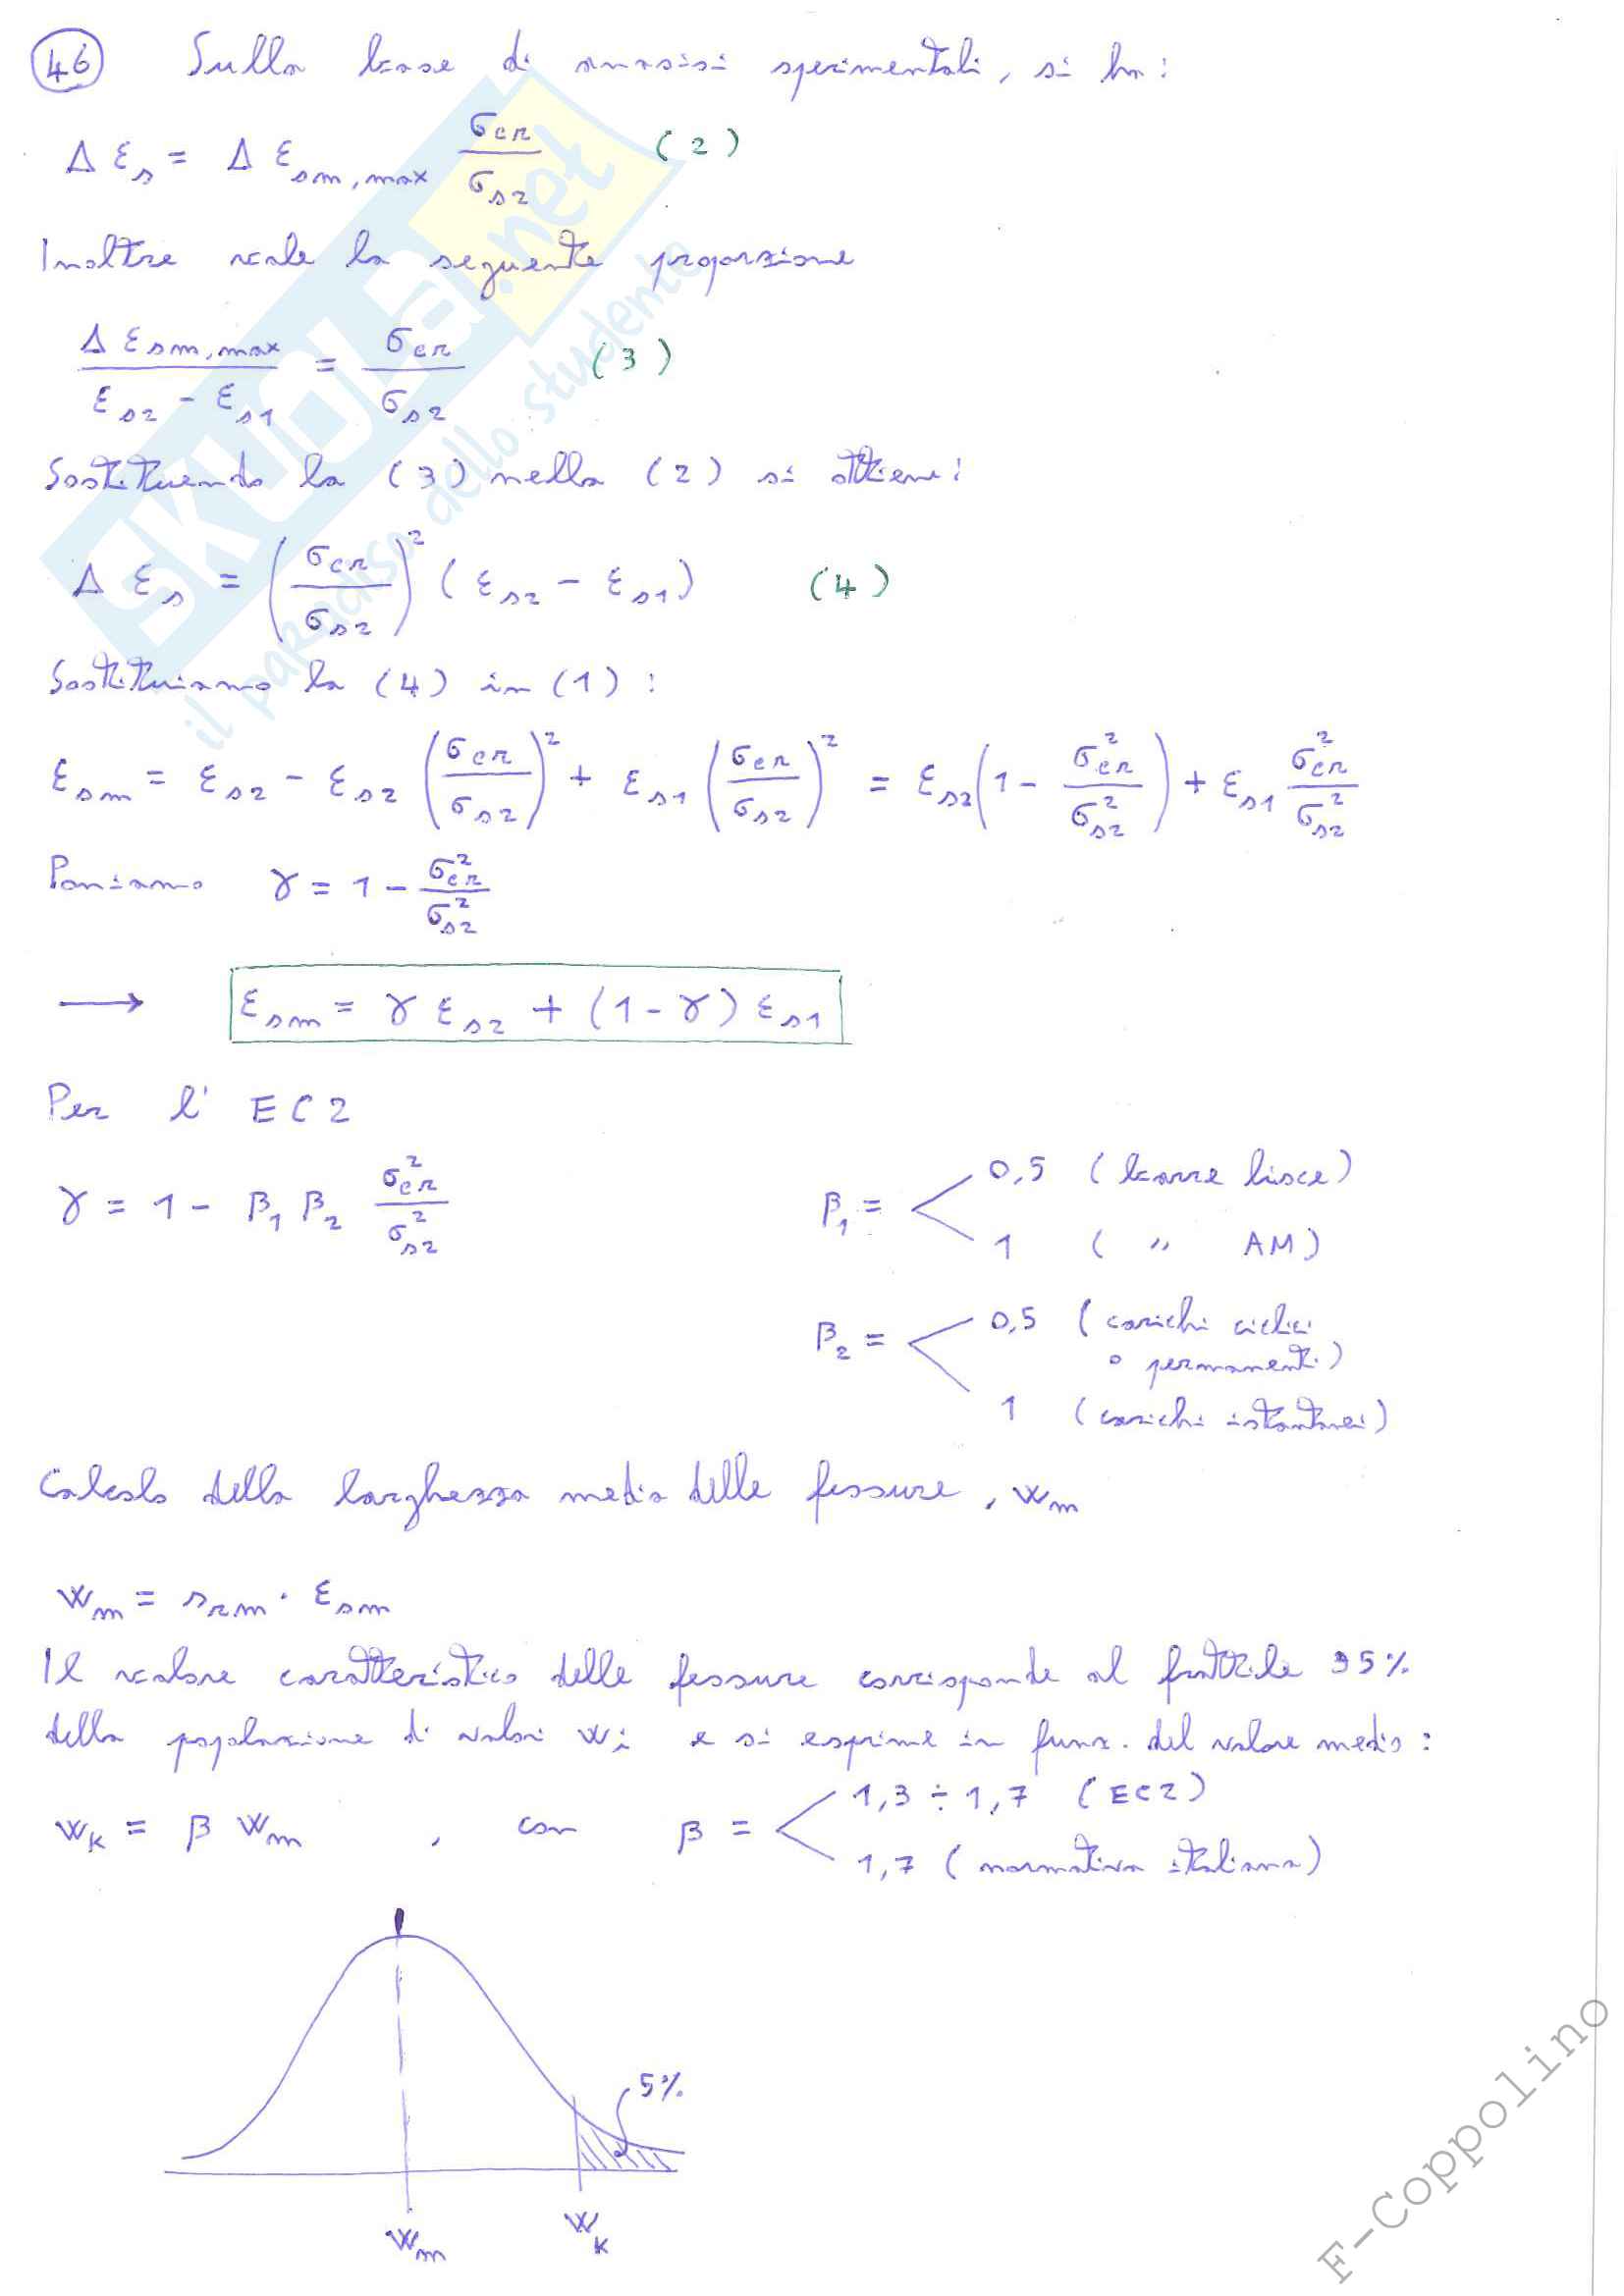 46 Sulla base di analisi sperimentali, si ha:
Δ ε_s = Δ ε_sm,max σ_cr / σ_s2 (2)
Inoltre vale la seguente proporzione
Δ ε_sm,max / (ε_s2 - ε_s1) = σ_cr / σ_s2 (3)
Sostituendo la (3) nella (2) si ottiene:
Δ ε_s = (σ_cr / σ_s2)² (ε_s2 - ε_s1) (4)
Sostituiamo la (4) in (1):
ε_sm = ε_s2 - ε_s2 (σ_cr / σ_s2)² + ε_s1 (σ_cr / σ_s2)² = ε_s2 (1 - σ²_cr / σ²_s2) + ε_s1 σ²_cr / σ²_s2
Poniamo γ = 1 - σ²_cr / σ²_s2
→ ε_sm = γ ε_s2 + (1 - γ) ε_s1
Per l' EC2
γ = 1 - β₁ β₂ σ²_cr / σ²_s2
β₁ = 0,5 (barre lisce)
1 ( " AM)
β₂ = 0,5 (carichi ciclici
o permanenti)
1 (carichi istantanei)
Calcolo della larghezza media delle fessure, w_m
w_m = s_rm · ε_sm
Il valore caratteristico delle fessure corrisponde al frattile 95%
della popolazione di valori w_i e si esprime in funz. del valore medio:
w_k = β w_m , con β = 1,3 ÷ 1,7 (EC2)
1,7 (normativa italiana)
5%
w_m w_k
SKUOLA.net
il paradiso dello studente
F-Coppolino